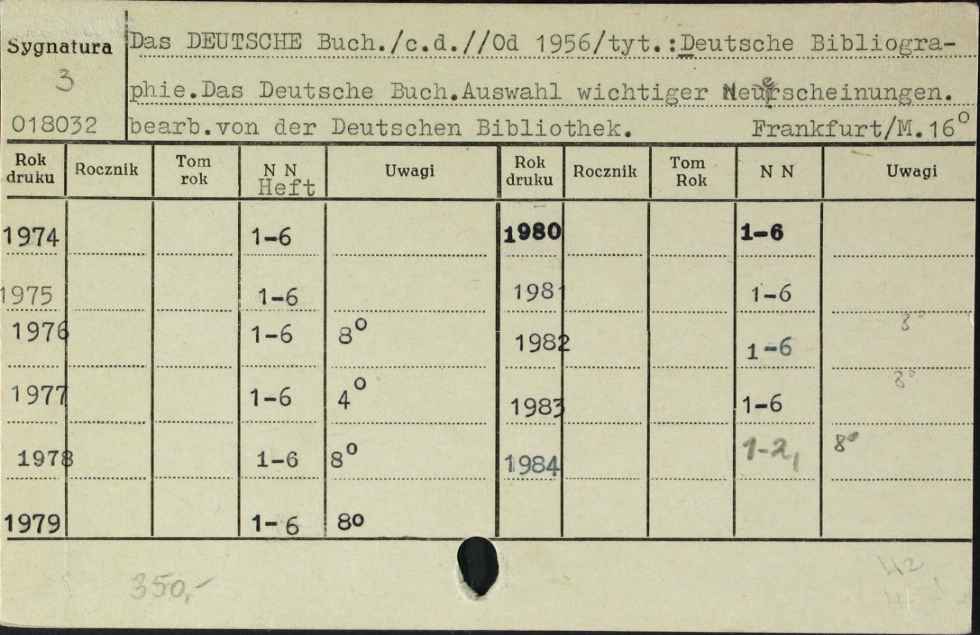 Sygnatura
3
018032
Das DEUTSCHE Buch./c.d.//Od 1956/tyt.:Deutsche Bibliogra-
phie.Das Deutsche Buch.Auswahl wichtiger Neuerscheinungen.
bearb.von der Deutschen Bibliothek. Frankfurt/M.16°
Rok druku Rocznik Tom rok N N Heft Uwagi Rok druku Rocznik Tom Rok N N Uwagi
1974 1-6 1980 1-6
1975 1-6 1981 1-6
1976 1-6 8° 1982 1-6 8°
1977 1-6 4° 1983 1-6 8°
1978 1-6 8° 1984 1-2, 8°
1979 1-6 8o
350,-